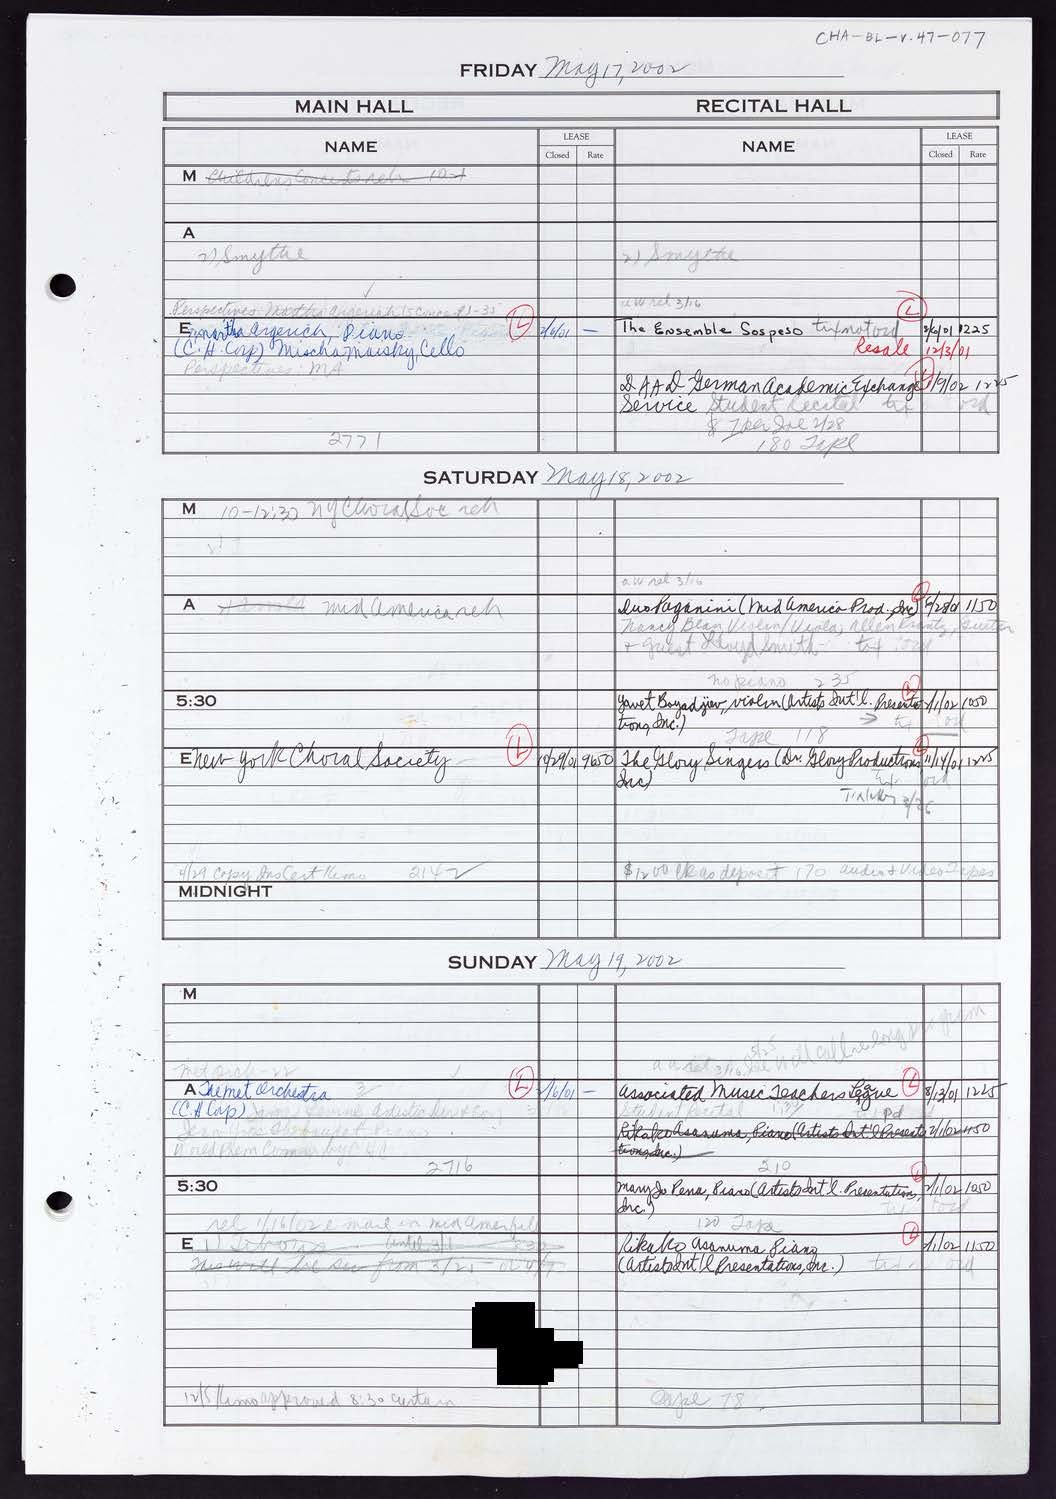 CHA-BL-V.47-077
FRIDAY May 17, 2002
MAIN HALL RECITAL HALL
NAME LEASE Closed Rate NAME LEASE Closed Rate
M Childrens Concerts reh 10-1
A
2) Smythe 2) Smythe
Perspectives: Martha Argerich aw rel 3/16
E Martha Argerich, Piano L 2/6/01 — The Ensemble Sospeso tix not ord L 1225
(C.H. Corp) Mischa Maisky, Cello Resale 12/3/01
Perspectives: MA
DAAD German Academic Exchange 1/9/02 1225
Service Student Recital tix ord
2/28
2771 180 Tape
SATURDAY May 18, 2002
M 10-12:30 NY Choral Soc reh
aw rel 3/16
A Mid America reh Duo Paganini (Mid America Prod., Inc) 1150
Nancy Bean Violin/Viola, Allen Krantz, Guitar
+ guest Lloyd Smith tix ord
no piano 235
5:30 Yovet Boyadjiev, violin (Artists Int'l. Presenta- 2/1/02 1050
tions, Inc.) tix ord
Tape 118
E New York Choral Society L 10/29/01 9650 The Glory Singers (Dr. Glory Productions L 11/14/01 1225
Inc) tix ord
3/26
4/29 Copy Ins Cert Kemo 2142 $1200 ck as deposit 170 audio & Video Tapes
MIDNIGHT
SUNDAY May 19, 2002
M
Met Orch-22 aw rel 3/16 will call re long program
A The Met Orchestra L 2/6/01 — Associated Music Teachers League L 8/13/01 1225
(C H Corp) James Levine Artistic Dir & Cond Student Recital pd
Rikako Asanuma, Piano (Artists Int'l Presenta- 2/1/02 1150
World Prem Comm by CH tions, Inc.)
2716 210
5:30 Mary Jo Pena, Piano (Artists Int'l. Presentations, L 2/1/02 1050
Inc.)
rel 1/16/02 e mail in Mid Amer file 120 Tape
E Rikako Asanuma Piano L 2/1/02 1150
(Artists Int'l Presentations, Inc.) ord
12/5 Kemo approved 8:30 curtain Tape 78